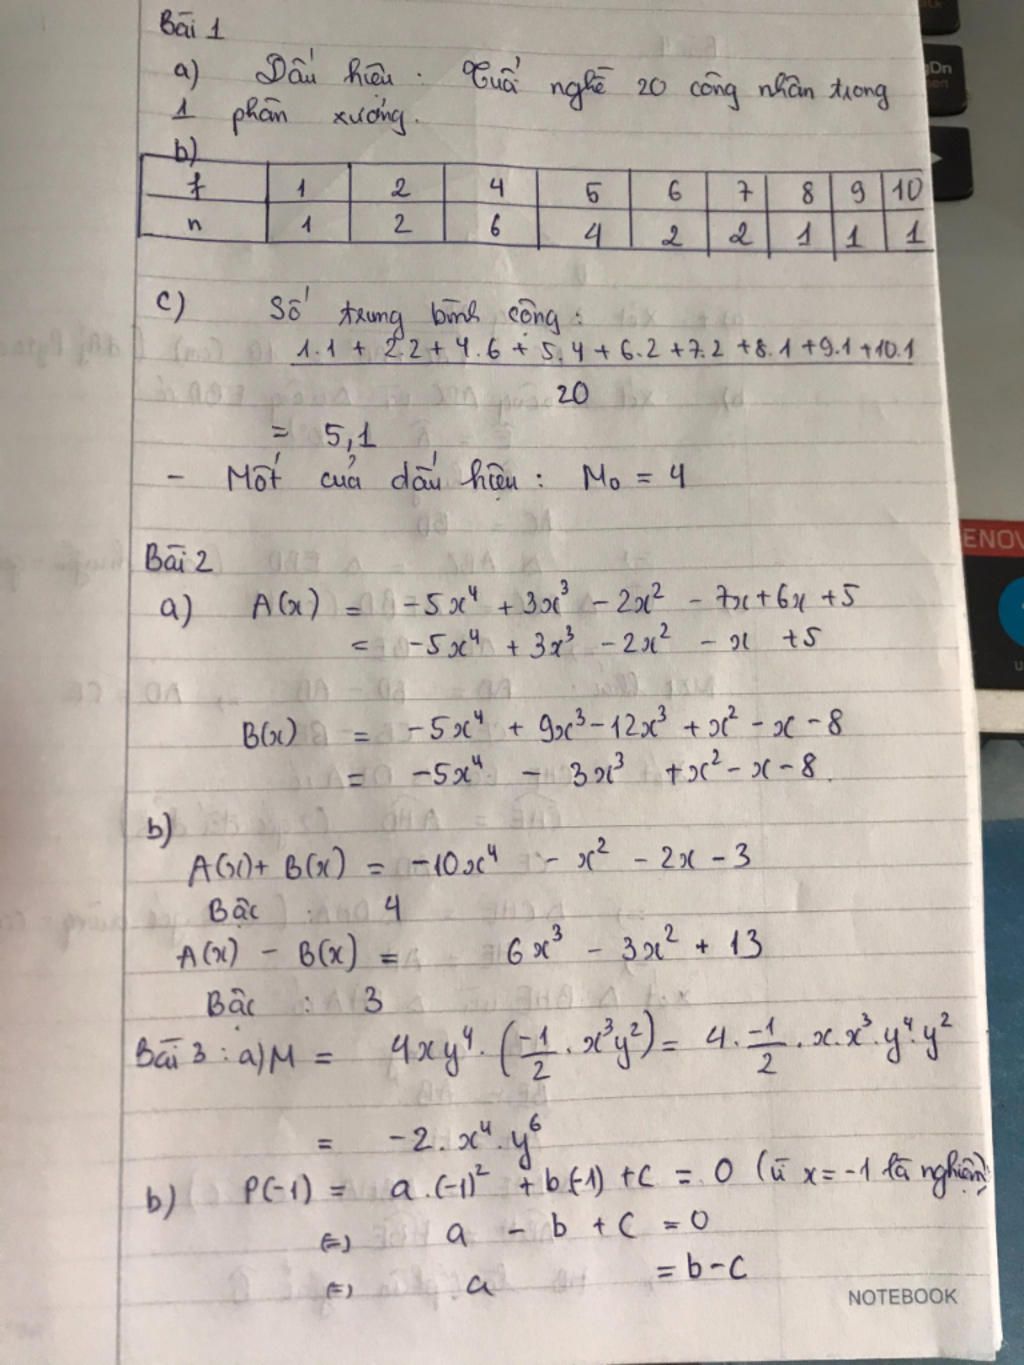 Bài 1
a) Dấu hiệu : Tuổi nghề 20 công nhân trong
1 phân xưởng.
b)
x 1 2 4 5 6 7 8 9 10
n 1 2 6 4 2 2 1 1 1
c) Số trung bình cộng :
1.1 + 2.2 + 4.6 + 5.4 + 6.2 + 7.2 + 8.1 + 9.1 + 10.1
20
= 5,1
- Mốt của dấu hiệu : M₀ = 4
Bài 2
a) A(x) = -5x⁴ + 3x³ - 2x² - 7x + 6x + 5
= -5x⁴ + 3x³ - 2x² - x + 5
B(x) = -5x⁴ + 9x³ - 12x³ + x² - x - 8
= -5x⁴ - 3x³ + x² - x - 8.
b)
A(x) + B(x) = -10x⁴ - x² - 2x - 3
Bậc : 4
A(x) - B(x) = 6x³ - 3x² + 13
Bậc : 3
Bài 3 : a) M = 4xy⁴ . (-1/2 . x³y²) = 4 . -1/2 . x.x³.y⁴.y²
= -2 . x⁴ . y⁶
b) P(-1) = a.(-1)² + b(-1) + c = 0 (vì x = -1 là nghiệm)
(=) a - b + c = 0
(=) a = b - c
NOTEBOOK
PgDn
ENOV